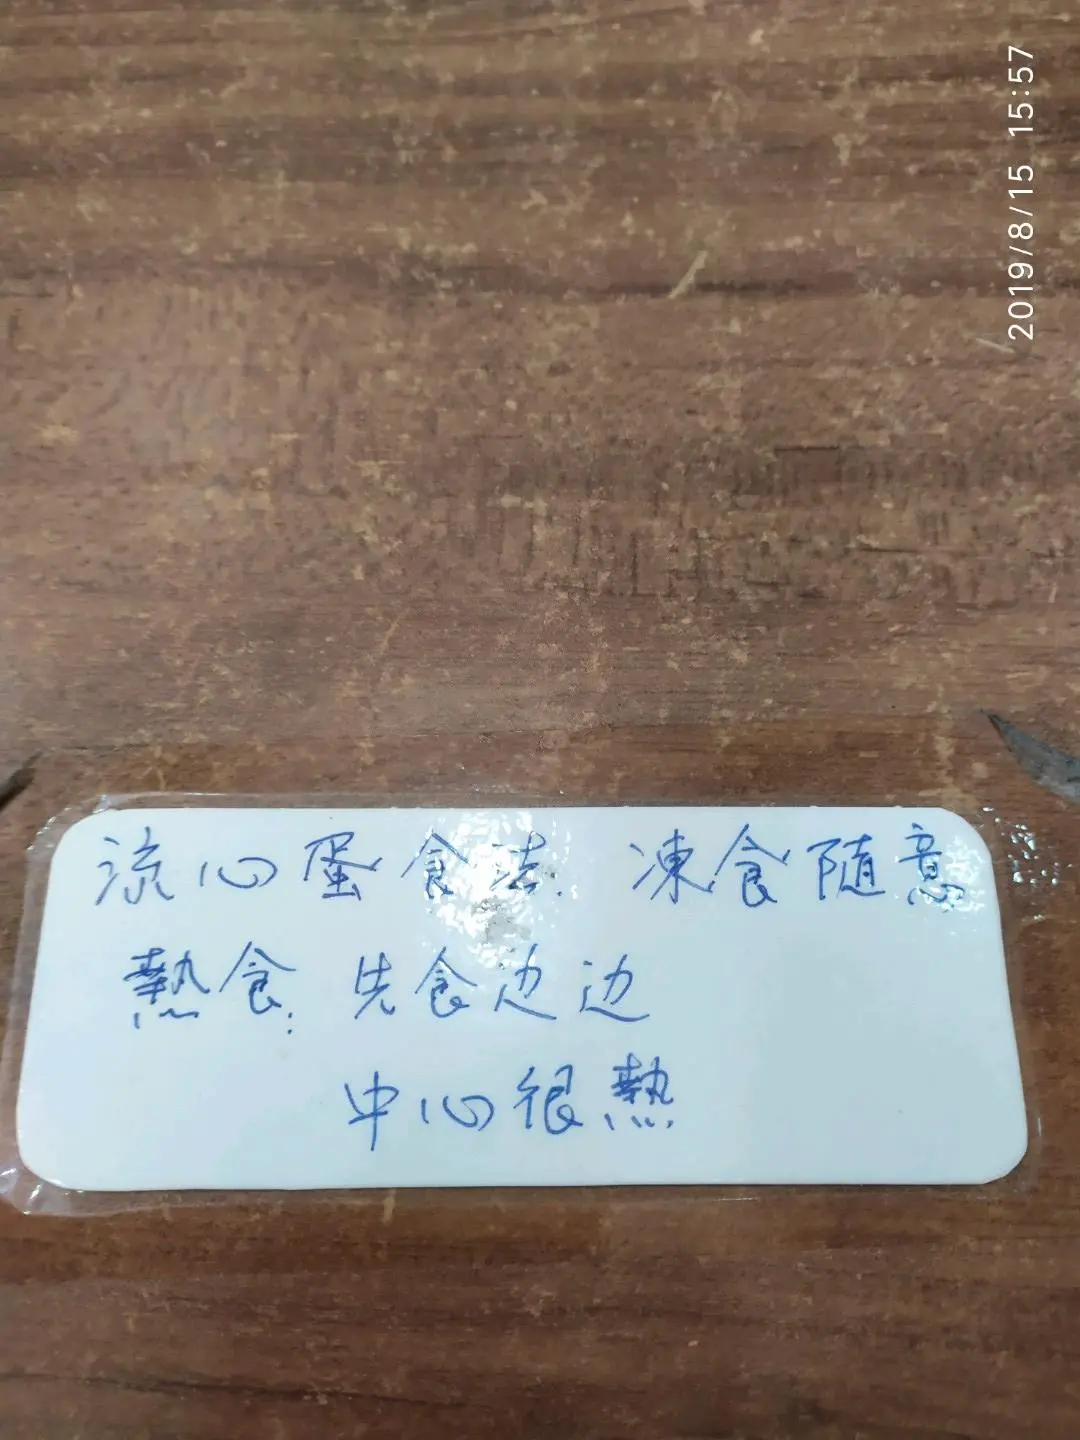 2019/8/15 15:57
流心蛋食法 凍食随意
熱食: 先食边边
中心很熱